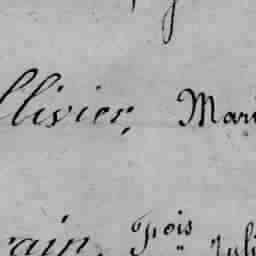 llivier, Mari
rain, Fois Juli